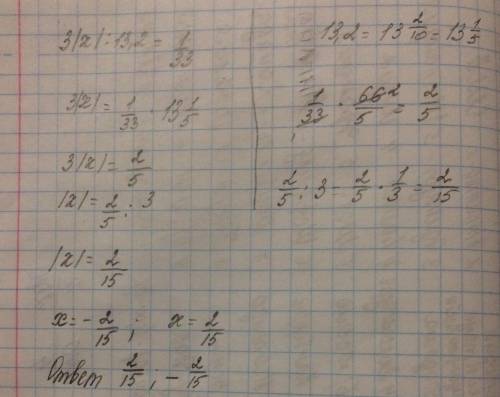 3|x| : 13,2 = 1/33
3|x| = 1/33 · 13 1/5
3|x| = 2/5
|x| = 2/5 : 3
|x| = 2/15
x = - 2/15 ; x = 2/15
Ответ 2/15 ; - 2/15
13,2 = 13 2/10 = 13 1/5
1/33 · 66 2/5 = 2/5
2/5 : 3 - 2/5 · 1/3 = 2/15